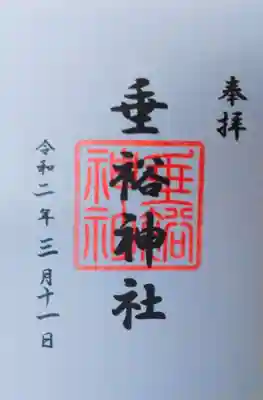 奉拝
垂裕神社
令和二年三月十一日
垂裕神社